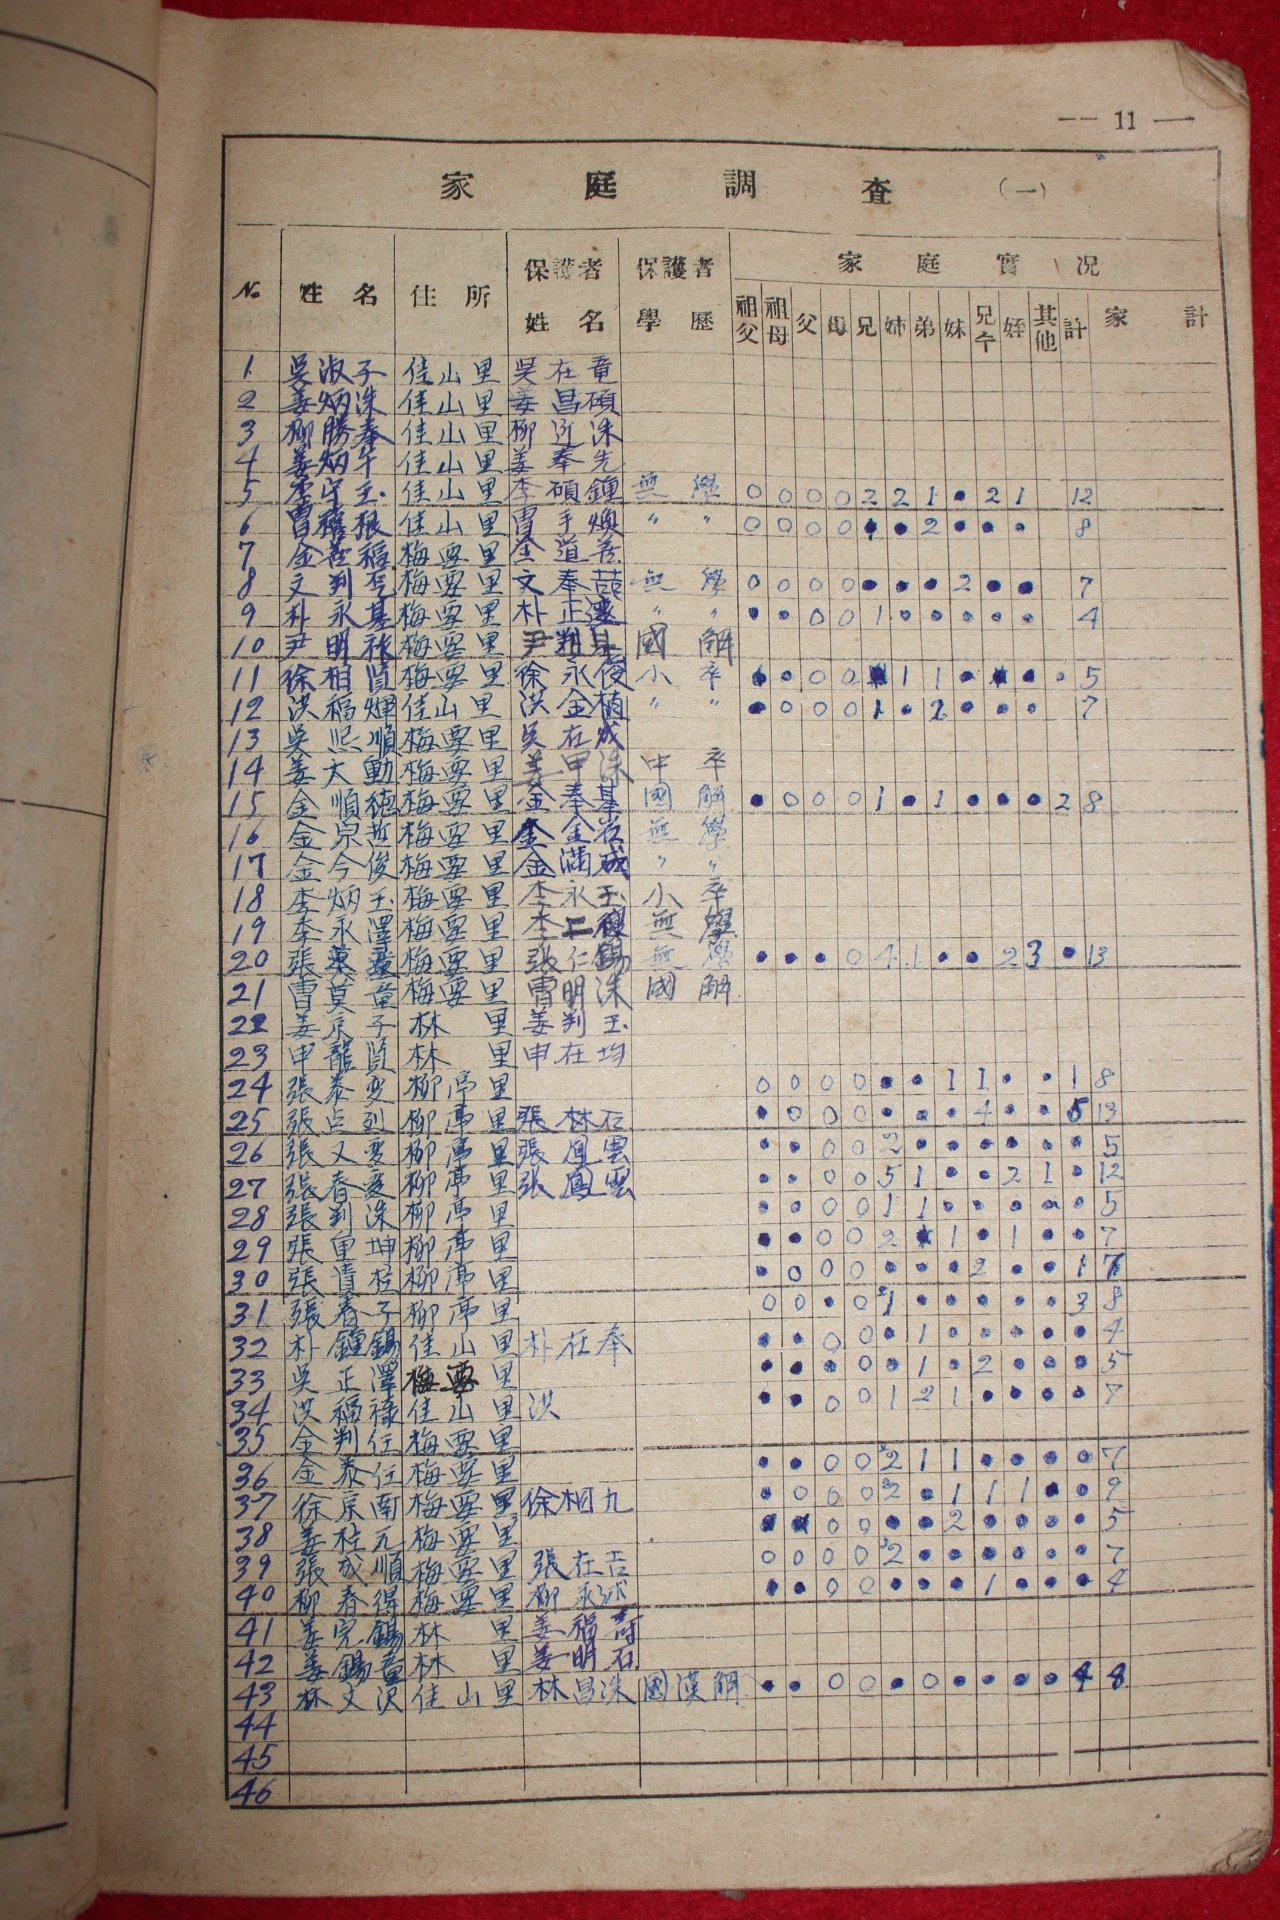 — 11 —
家庭調査 (一)
№ 姓名 住所 保護者姓名 保護者學歷 家庭實況
祖父 祖母 父 母 兄 姉 弟 妹 兄수 姪 其他 計 家計
1 吳淑子 佳山里 吳在竜
2 姜炳洙 佳山里 姜昌碩
3 柳勝奉 佳山里 柳近洙
4 姜炳午 佳山里 姜奉先
5 李守玉 佳山里 李碩鍾 無學 ○ ○ ○ ○ 2 2 1 • 2 1 12
6 曺 根 佳山里 曺手煥 〃 〃 ○ ○ ○ ○ • • 2 • • • 8
7 金 福 梅要里 金道
8 文判 梅要里 文奉喆 無學 ○ ○ ○ ○ • • • 2 • • 7
9 朴永基 梅要里 朴正 〃 〃 • • ○ ○ 1 • • • • • 4
10 尹明 梅要里 尹判 國解
11 徐相賢 梅要里 徐永俊 小卒 • • ○ ○ • 1 1 • • • • 5
12 洪福煇 佳山里 洪金植 〃 〃 • ○ ○ ○ 1 • 2 • • • 7
13 吳熙順 梅要里 吳在成
14 姜大動 梅要里 姜甲洙 中卒
15 金順德 梅要里 金奉基 國解 • ○ ○ ○ 1 • 1 • • • 2 8
16 金宗哲 梅要里 金金岩 無學
17 金今俊 梅要里 金滿成 〃 〃
18 李炳玉 梅要里 李永玉 小卒
19 李永澤 梅要里 李二 無學
20 張 梅要里 張仁錫 無學 • • • ○ 4 1 • • 2 3 • 13
21 曺莫童 梅要里 曺明洙 國解
22 姜京子 林里 姜判玉
23 申龍賢 林里 申在均
24 張泰 柳亭里 ○ ○ ○ ○ • • 1 1 • • 1 8
25 張点烈 柳亭里 張林石 • ○ ○ ○ • • • 4 • • 5 13
26 張又 柳亭里 張鳳雲 • • ○ ○ 2 • • • • • • 5
27 張春 柳亭里 張鳳雲 • • ○ ○ 5 1 • • 2 1 • 12
28 張判洙 柳亭里 • • ○ ○ 1 1 • • • • • 5
29 張 坤 柳亭里 • • ○ ○ 2 • 1 • 1 • • 7
30 張貴柱 柳亭里 • ○ ○ ○ • • • 2 • • 1 7
31 張春子 柳亭里 ○ ○ • ○ 1 • • • • • 3 8
32 朴鍾錫 佳山里 朴在奉 • • ○ ○ • 1 • • • • • 4
33 吳正澤 梅要里 • • • ○ • 1 • 2 • • • 5
34 洪福祿 佳山里 洪 • • ○ ○ 1 2 1 • • • • 7
35 金判任 梅要里
36 金泰任 梅要里 • • ○ ○ 2 1 1 • • • • 7
37 徐京南 梅要里 徐相九 • ○ ○ ○ 2 • 1 1 1 • • 9
38 姜柱元 梅要里 • • ○ ○ • • 2 • • • • 5
39 張成順 梅要里 張在吉 ○ ○ ○ ○ 2 • • • • • • 7
40 柳春得 梅要里 柳永 • • ○ ○ • • • 1 • • • 4
41 姜完錫 林里 姜福
42 姜錫童 林里 姜明石
43 林文沢 佳山里 林昌洙 國漢解 • • ○ ○ • ○ • • • • 4 8
44
45
46